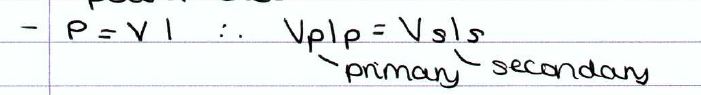 - P = V I ∴ VpIp = VsIs
primary secondary